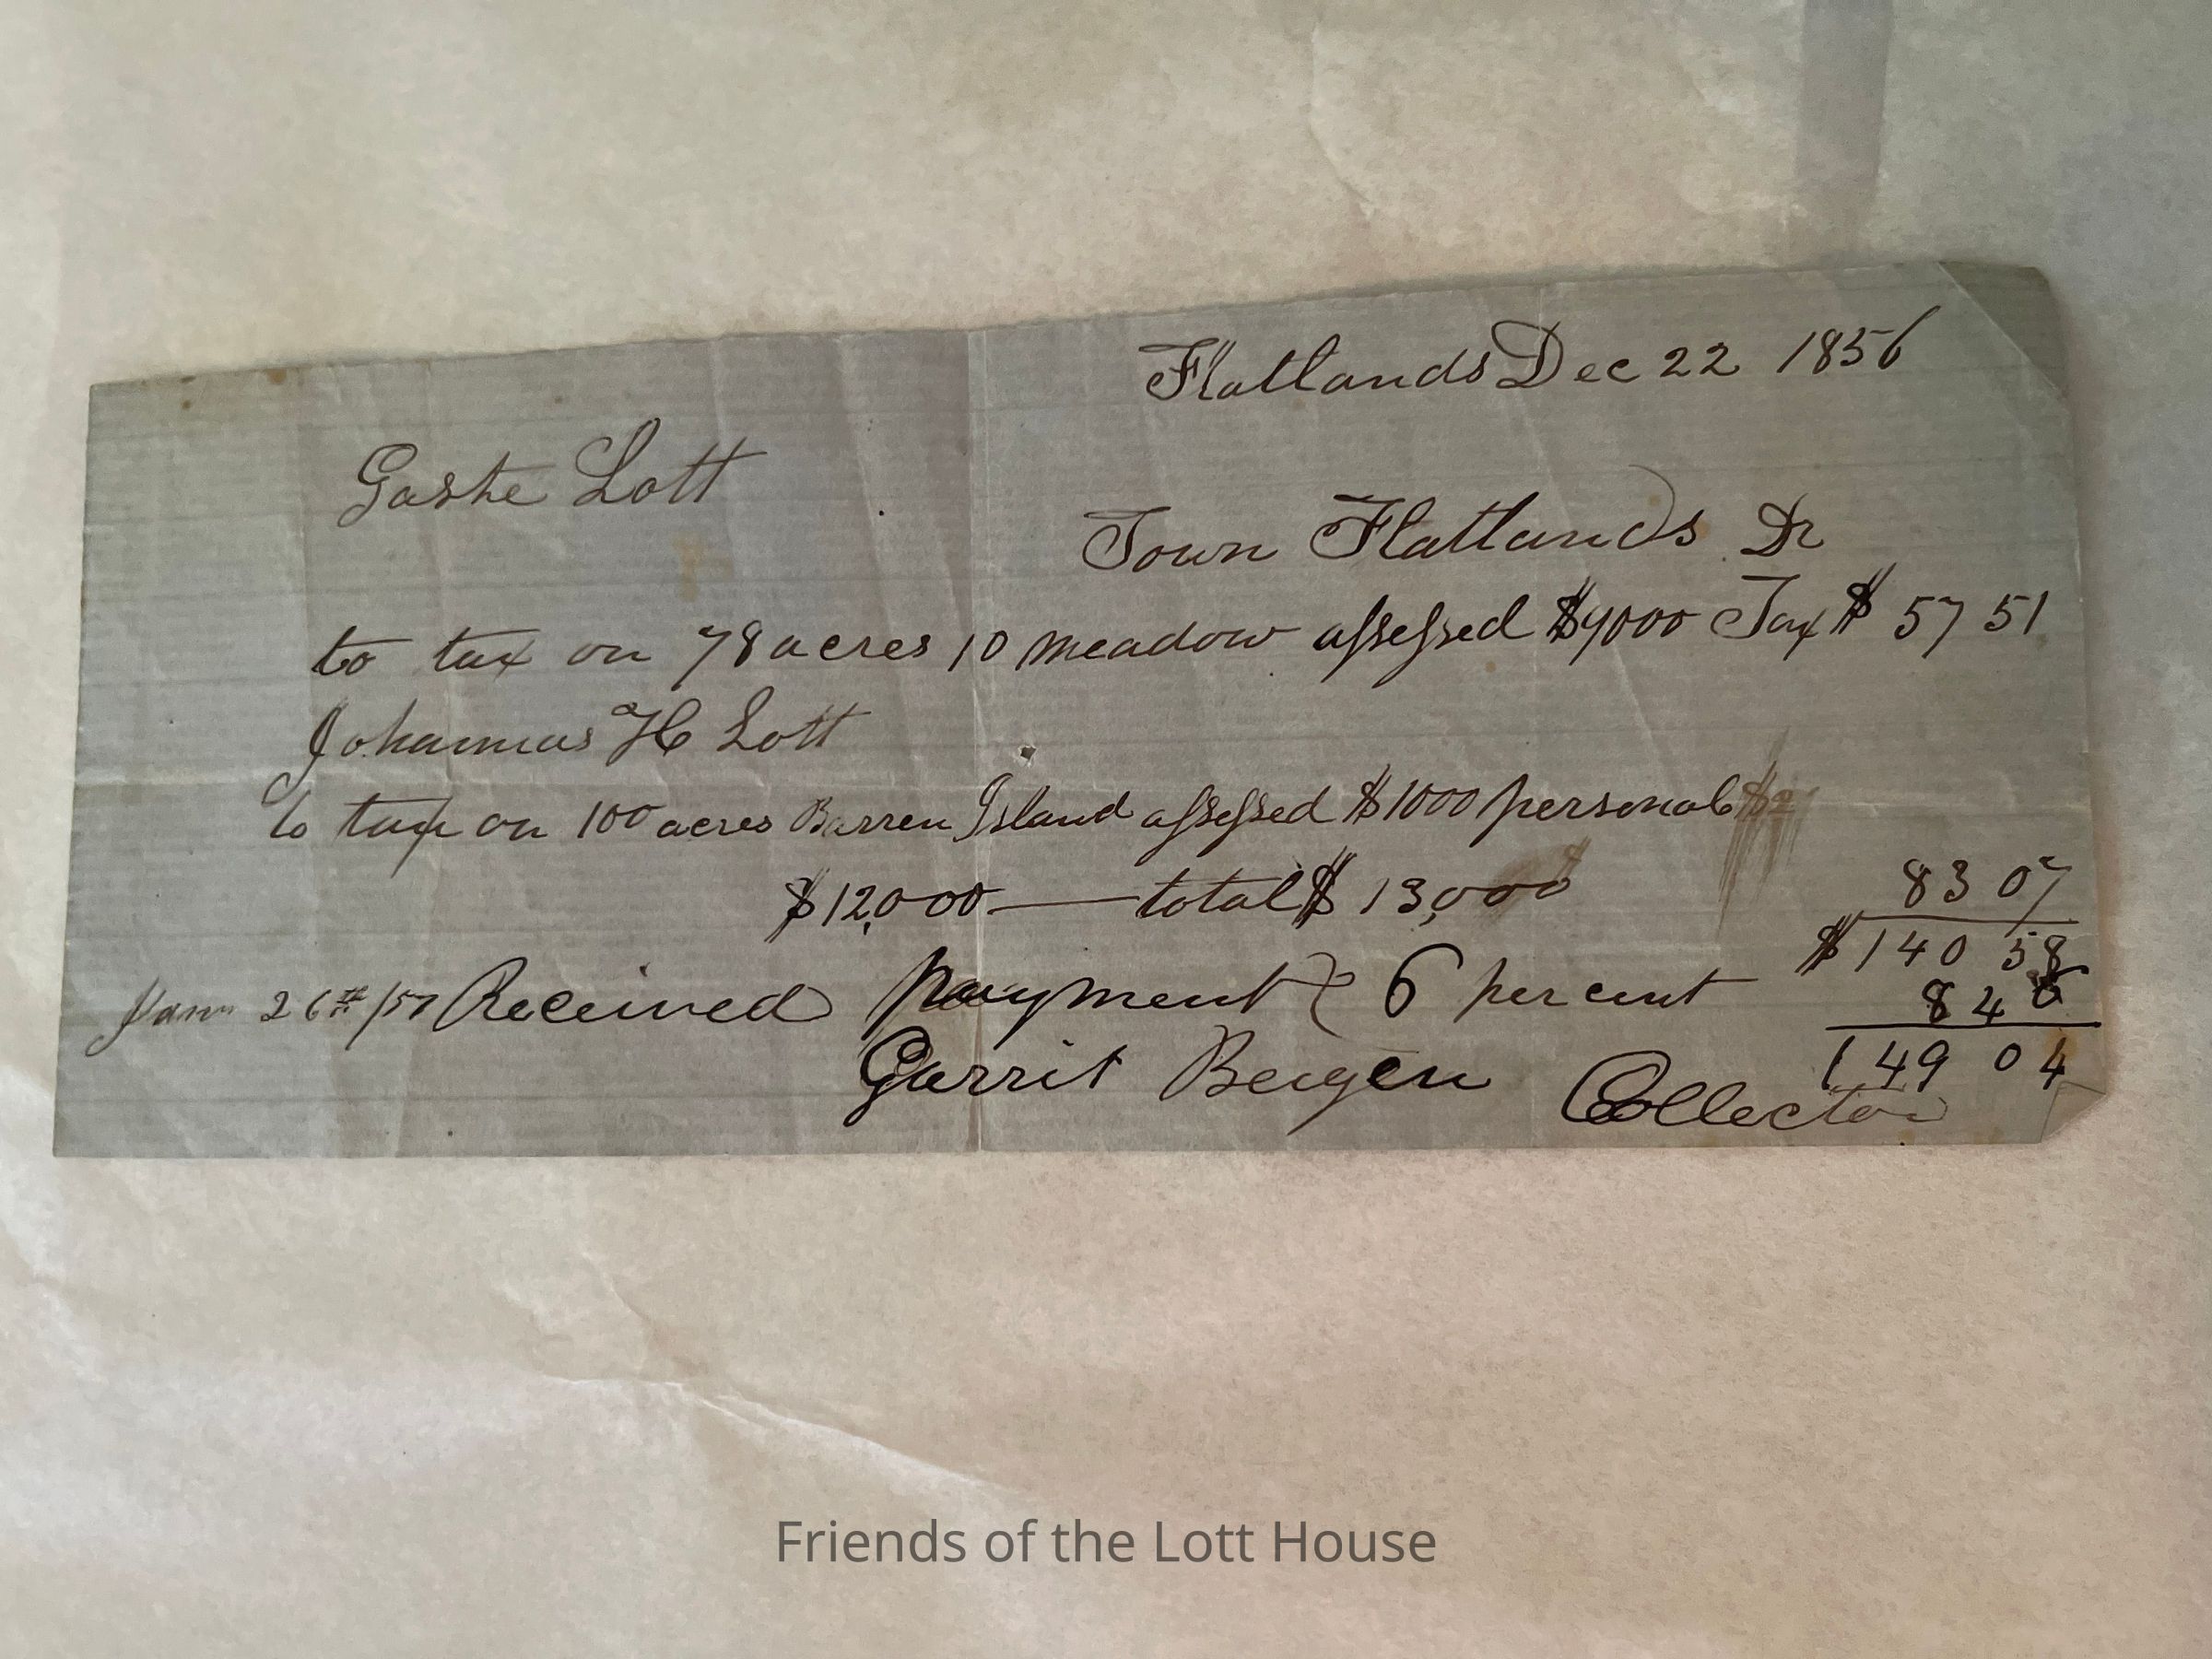 Flatlands Dec 22 1856
Gashe Lott
Town Flatlands Dr
to tax on 78 acres 10 meadow assessed $9000 Tax $ 57 51
Johannas H Lott
to tax on 100 acres Barren Island assessed $1000 personal
83 07
$12,000 — total $ 13,000
$140 58
Jann 26th /57 Received payment & 6 per cent
8 46
149 04
Garrit Bergen Collector
Friends of the Lott House